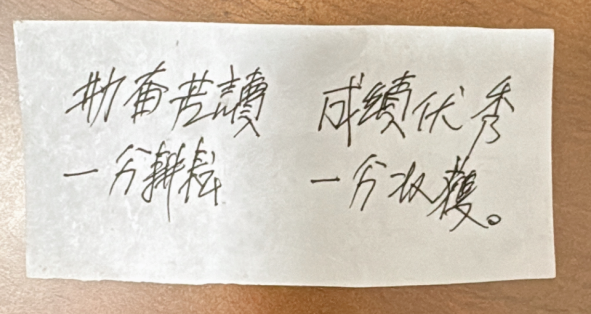 勤奋苦讀 成績优秀
一分耕耘 一分收穫。